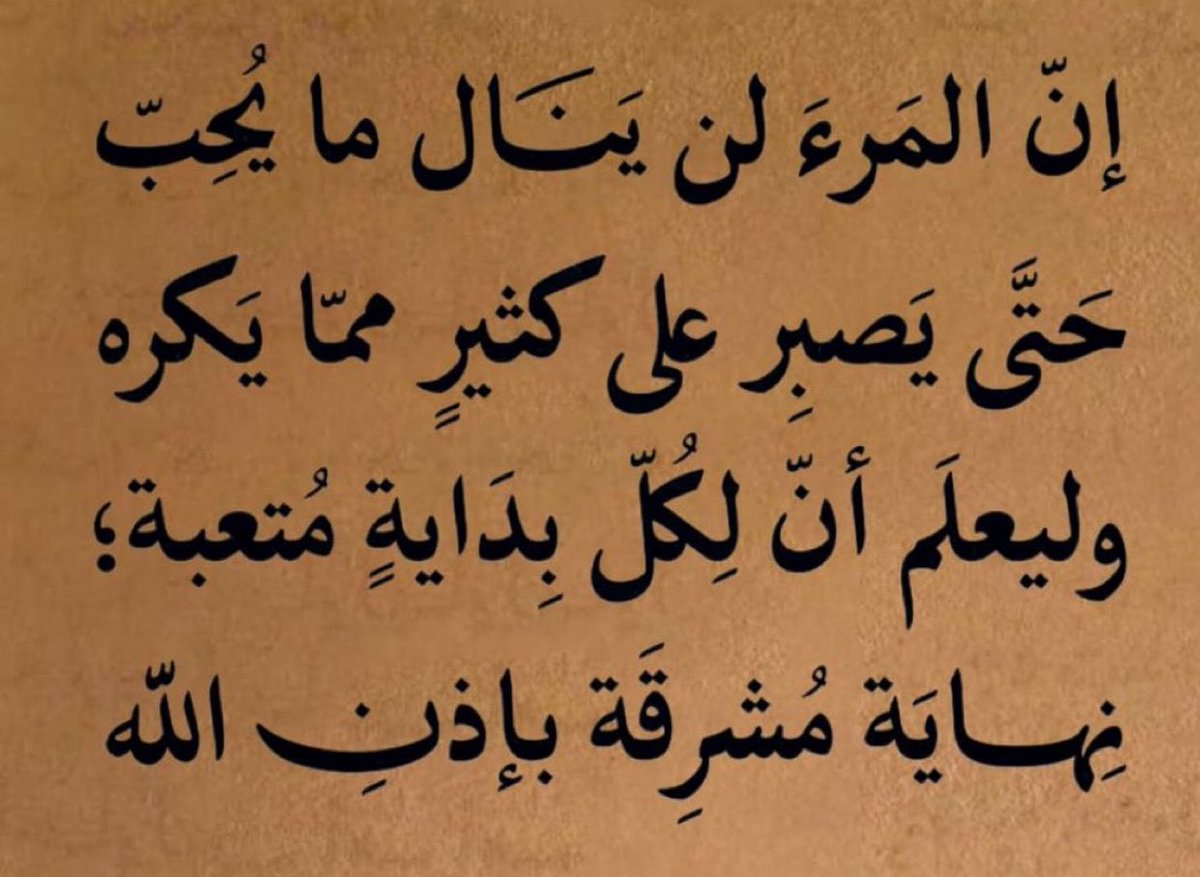 إنّ المَرءَ لن يَنَال ما يُحِبّ
حَتَّى يَصبِر على كثيرٍ ممّا يَكره
وليعلَم أنّ لِكُلّ بِدَايةٍ مُتعبة؛
نِهايَة مُشرِقَة بإذنِ اللّه